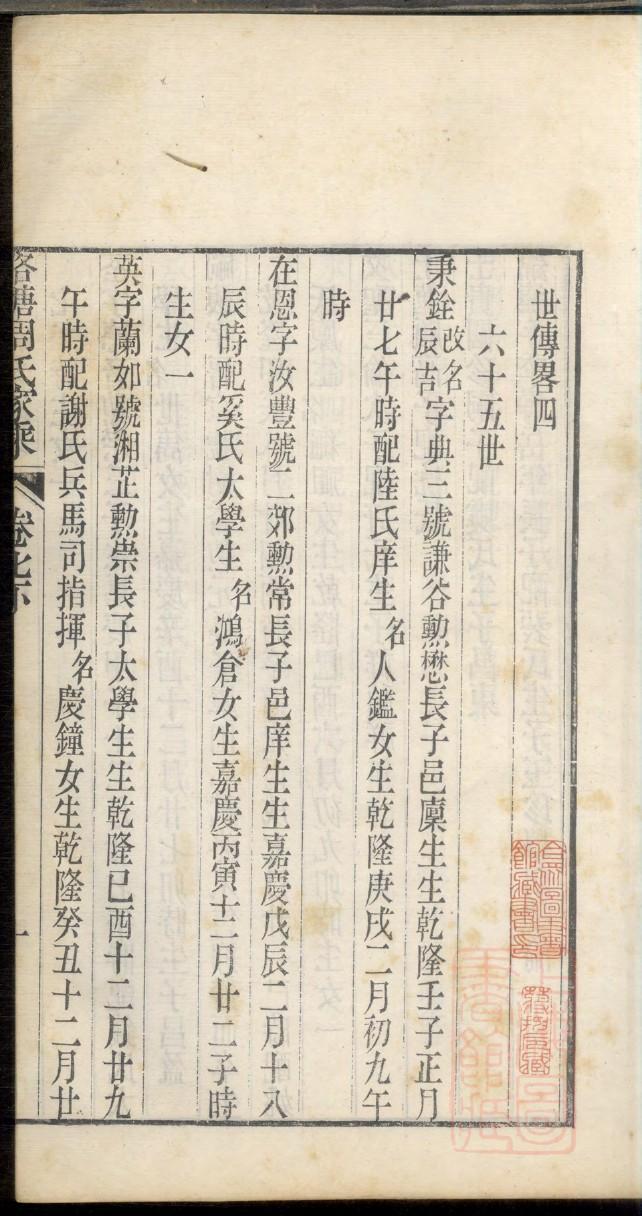 世傳畧四
六十五世
秉銓改名辰吉字典三號謙谷勲懋長子邑廩生生乾隆壬子正月
廿七午時配陸氏庠生名人鑑女生乾隆庚戌二月初九午
時
在恩字汝豐號二郊勲常長子邑庠生生嘉慶戊辰二月十八
辰時配奚氏太學生名鴻倉女生嘉慶丙寅十二月廿二子時
生女一
英字蘭如號湘芷勲崇長子太學生生乾隆己酉十二月廿九
午時配謝氏兵馬司指揮名慶鐘女生乾隆癸丑十二月廿
塘周氏家乘 卷七下 一